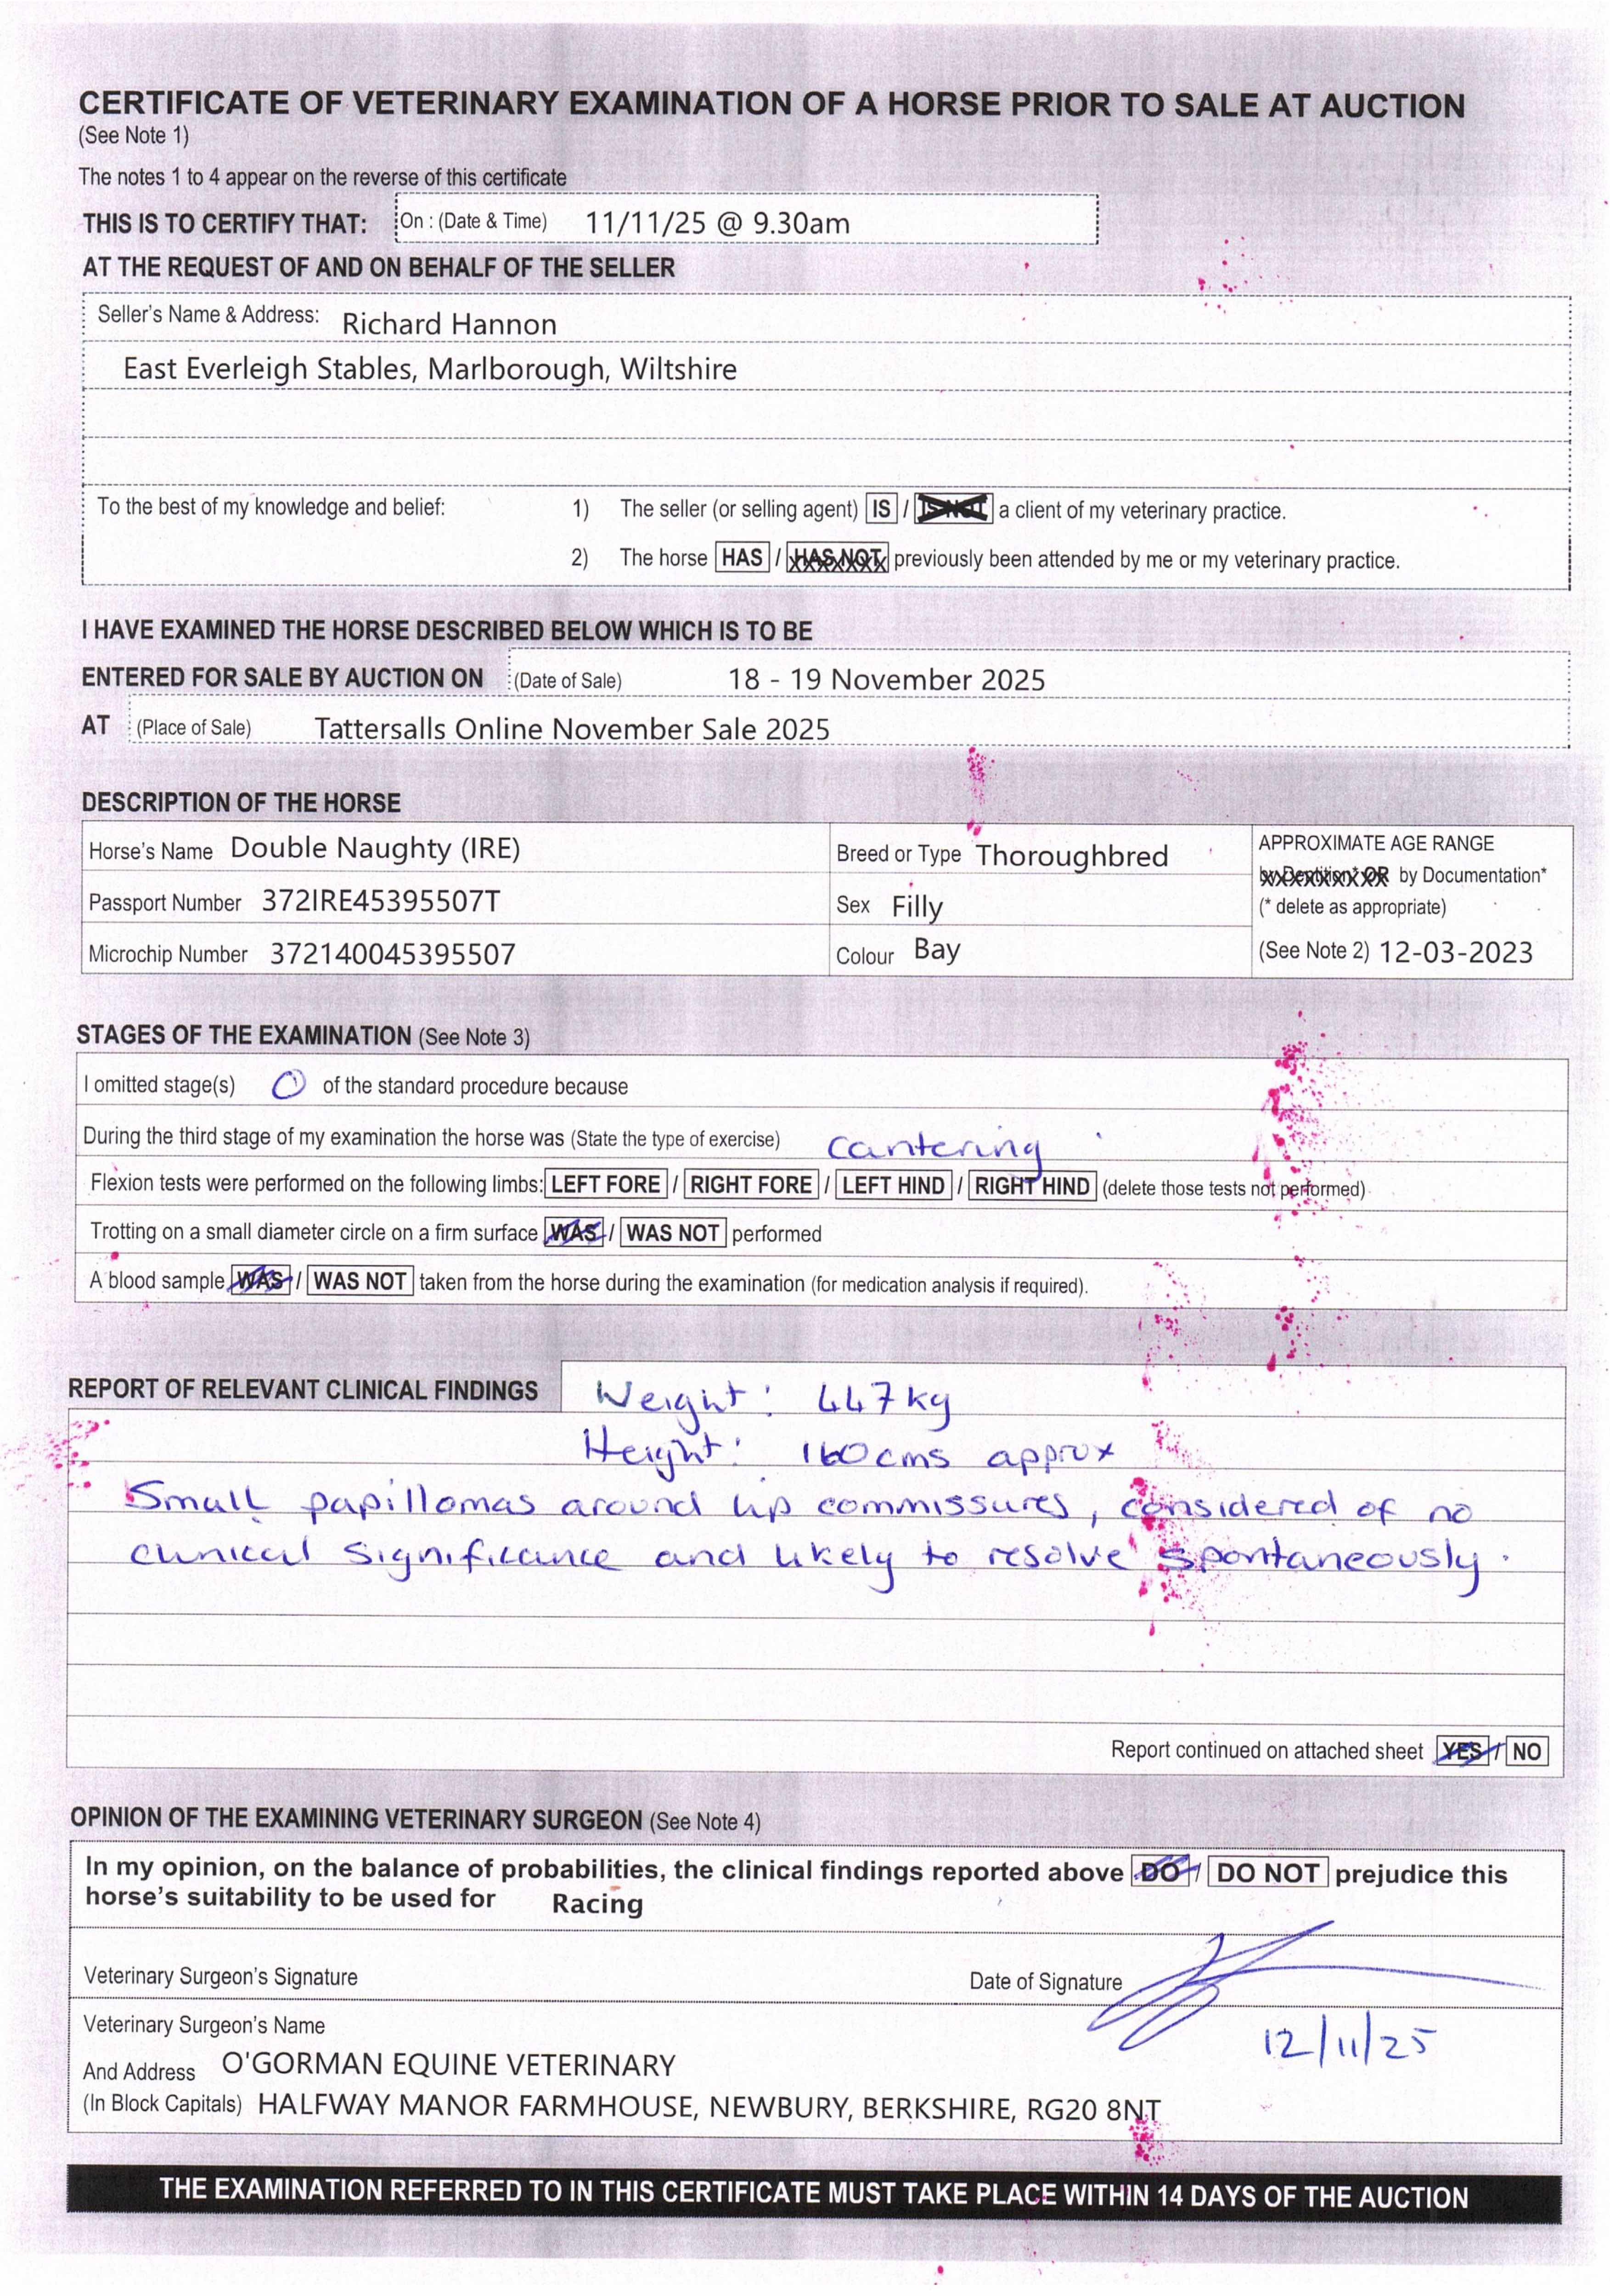 CERTIFICATE OF VETERINARY EXAMINATION OF A HORSE PRIOR TO SALE AT AUCTION
(See Note 1)
The notes 1 to 4 appear on the reverse of this certificate
THIS IS TO CERTIFY THAT: On : (Date & Time) 11/11/25 @ 9.30am
AT THE REQUEST OF AND ON BEHALF OF THE SELLER
Seller's Name & Address: Richard Hannon
East Everleigh Stables, Marlborough, Wiltshire
To the best of my knowledge and belief: 1) The seller (or selling agent) IS / IS NOT a client of my veterinary practice.
2) The horse HAS / HAS NOT previously been attended by me or my veterinary practice.
I HAVE EXAMINED THE HORSE DESCRIBED BELOW WHICH IS TO BE
ENTERED FOR SALE BY AUCTION ON (Date of Sale) 18 - 19 November 2025
AT (Place of Sale) Tattersalls Online November Sale 2025
DESCRIPTION OF THE HORSE
Horse's Name Double Naughty (IRE) Breed or Type Thoroughbred APPROXIMATE AGE RANGE
by Dentition* OR by Documentation*
Passport Number 372IRE45395507T Sex Filly (* delete as appropriate)
Microchip Number 372140045395507 Colour Bay (See Note 2) 12-03-2023
STAGES OF THE EXAMINATION (See Note 3)
I omitted stage(s) 0 of the standard procedure because
During the third stage of my examination the horse was (State the type of exercise) cantering
Flexion tests were performed on the following limbs: LEFT FORE / RIGHT FORE / LEFT HIND / RIGHT HIND (delete those tests not performed)
Trotting on a small diameter circle on a firm surface WAS / WAS NOT performed
A blood sample WAS / WAS NOT taken from the horse during the examination (for medication analysis if required).
REPORT OF RELEVANT CLINICAL FINDINGS Weight: 447kg
Height: 160cms approx
Small papillomas around lip commissures, considered of no
clinical significance and likely to resolve spontaneously.
Report continued on attached sheet YES / NO
OPINION OF THE EXAMINING VETERINARY SURGEON (See Note 4)
In my opinion, on the balance of probabilities, the clinical findings reported above DO / DO NOT prejudice this
horse's suitability to be used for Racing
Veterinary Surgeon's Signature Date of Signature
Veterinary Surgeon's Name
12/11/25
And Address O'GORMAN EQUINE VETERINARY
(In Block Capitals) HALFWAY MANOR FARMHOUSE, NEWBURY, BERKSHIRE, RG20 8NT
THE EXAMINATION REFERRED TO IN THIS CERTIFICATE MUST TAKE PLACE WITHIN 14 DAYS OF THE AUCTION